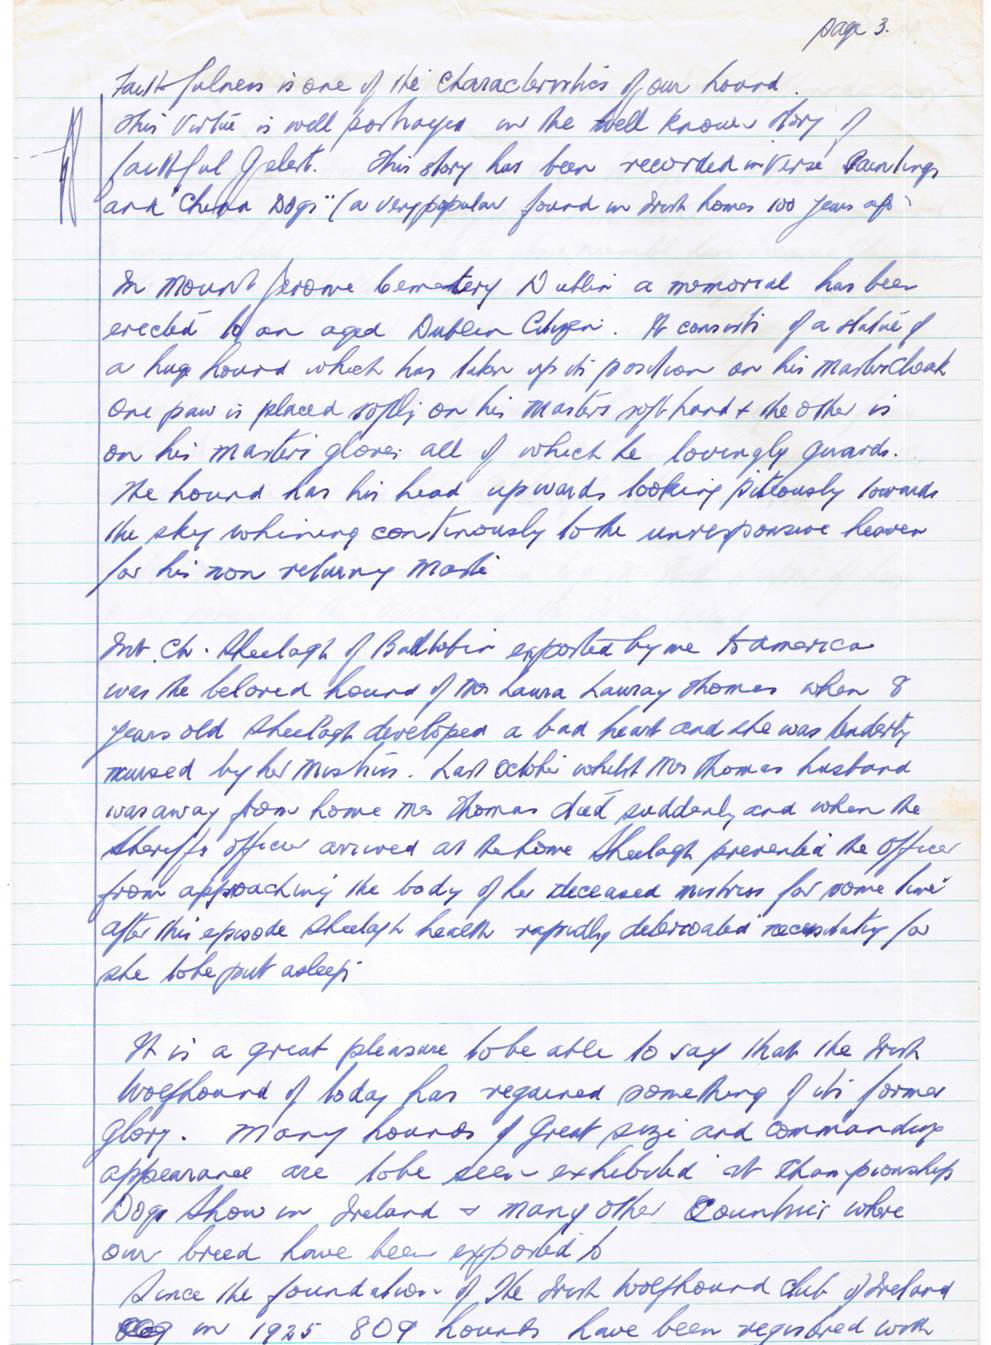 page 3.
Faithfulness is one of the Characteristics of our hound.
This Virtue is well portrayed in the well known story of
faithful Gelert. This story has been recorded in Verse Paintings
and "China Dogs" (a very popular found in Irish homes 100 years ago
In Mount Jerome Cemetery Dublin a memorial has been
erected to an aged Dublin Citizen. It consists of a statue of
a huge hound which has taken up its position on his Masters Cloak
One paw is placed softly on his Masters soft hand & the other is
on his Masters gloves all of which he lovingly guards.
The hound has his head upwards looking piteously towards
the sky whining continously to the unresponsive heaven
for his non returning Master
Int. Ch. Sheelagh of Ballytobin exported by me to america
was the beloved hound of Mrs Laura Thomas when 8
years old Sheelagh developed a bad heart and she was tenderly
nursed by her Mistress. Last October whilst Mrs Thomas husband
was away from home Mrs Thomas died suddenly and when the
Sheriffs officer arrived at the home Sheelagh prevented the officer
from approaching the body of her deceased mistress for some time
After this episode Sheelagh health rapidly deteriorated necessitating for
she to be put asleep.
It is a great pleasure to be able to say that the Irish
Wolfhound of today has regained something of its former
Glory. Many hounds of Great size and commanding
appearance are to be seen exhibited at Championship
Dogs Show in Ireland & many other Countries where
our breed have been exported to
Since the foundation of The Irish Wolfhound Club of Ireland
in 1925 809 hounds have been registered with